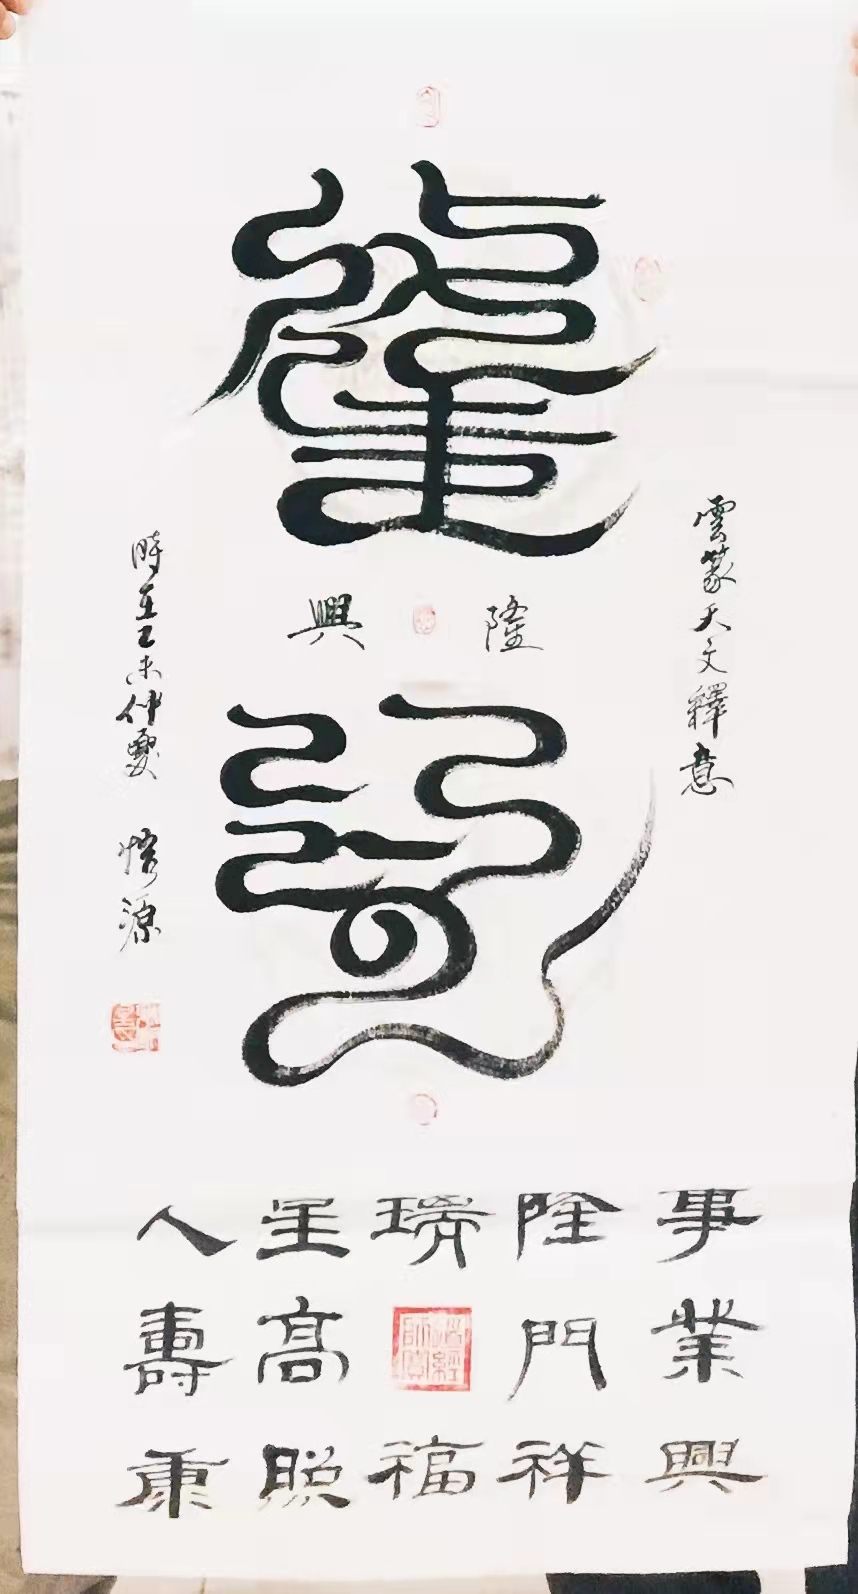 雲篆天文釋意
隆興
時在乙未仲夏 悟源
事業興
隆門祥
瑞福
星高照
人壽康
道經師寶